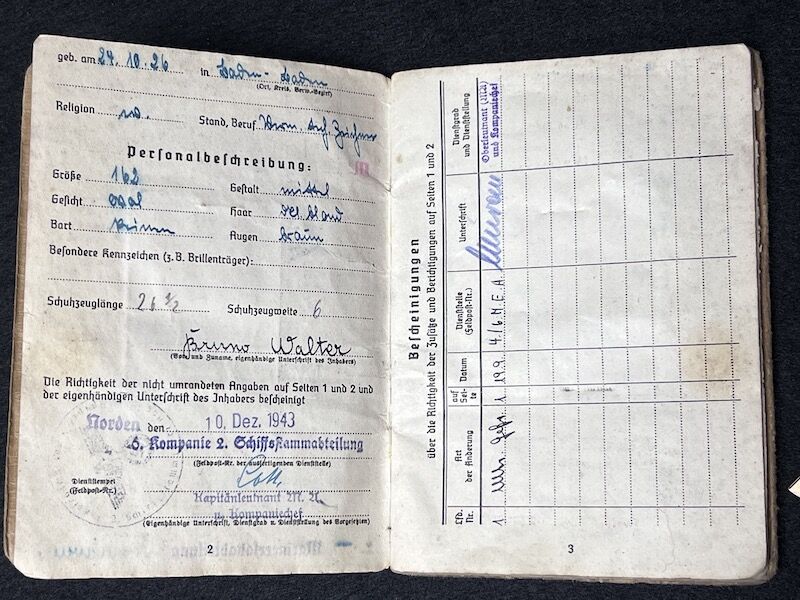 geb. am 24. 10. 26 in Baden-Baden
(Ort, Kreis, Verw.-Bezirk)
Religion Stand, Beruf Zeichner
Personalbeschreibung:
Größe 162 Gestalt mittel
Gesicht oval Haar blond
Bart keinen Augen braun
Besondere Kennzeichen (z. B. Brillenträger):
Schuhzeuglänge 26 1/2 Schuhzeugweite 6
Bruno Walter
(Vor- und Zuname, eigenhändige Unterschrift des Inhabers)
Die Richtigkeit der nicht umrandeten Angaben auf Seiten 1 und 2 und
der eigenhändigen Unterschrift des Inhabers bescheinigt
Norden den 10. Dez. 1943
6. Kompanie 2. Schiffsstammabteilung
(Feldpost-Nr. der ausfertigenden Dienststelle)
Dienststempel
(Feldpost-Nr.)
Kapitänleutnant M. A.
u. Kompaniechef
(Eigenhändige Unterschrift, Dienstgrad u. Dienststellung des Vorgesetzten)
2
Bescheinigungen
über die Richtigkeit der Zusätze und Berichtigungen auf Seiten 1 und 2
Lfd. Nr. Art der Änderung auf Seite Datum Dienststelle (Feldpost-Nr.) Unterschrift Dienstgrad und Dienststellung
1 1 19.9. 4./6. M.E.A. Oberleutnant (MA) und Kompaniechef
3